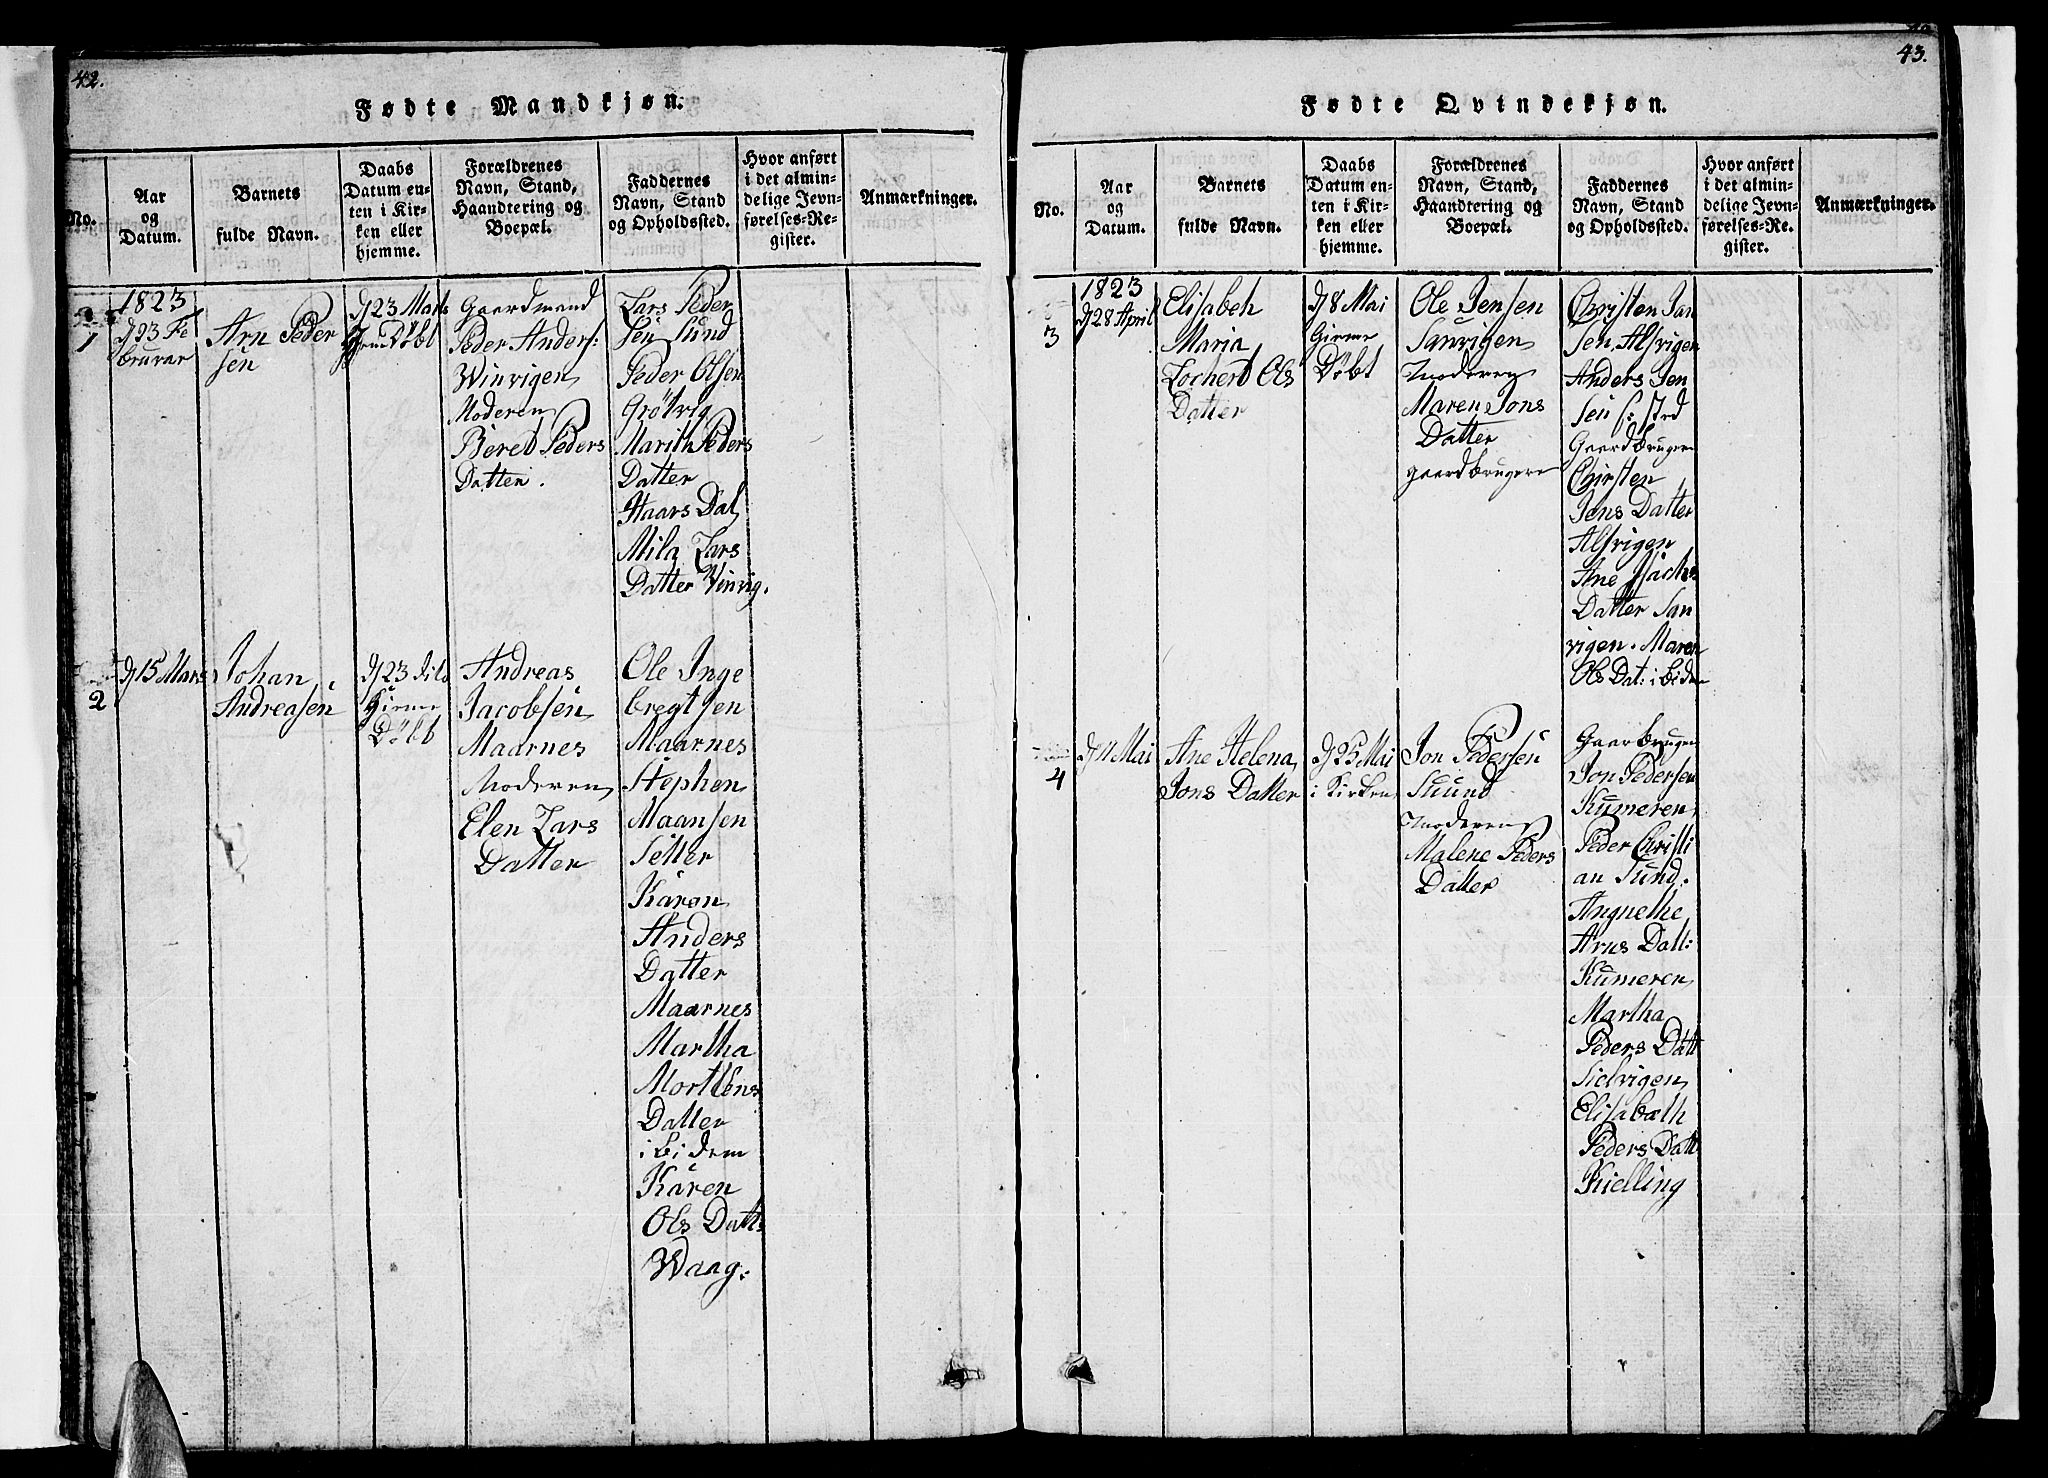 42.
Fødte Mandkjøn.
No.
Aar
og
Datum.
Barnets
fulde Navn.
Daabs
Datum en-
ten i Kir-
ken eller
hjemme.
Forældrenes
Navn, Stand,
Haandtering og
Boepæl.
Faddernes
Navn, Stand
og Opholdssted.
Hvor anført
i det almin-
delige Jevn-
førelses-Re-
gister.
Anmærkninger.
1
1823
d 23 Fe
bruvar
Arn Peder
sen
d 23 Marts
Döbt
Gaardmand
Peder Anders:
Winvigen
Moderen
Beret Peders
Datter.
Lars Peder
sen Sund
Peder Olsen
Grötvig
Marith Peders
Datter
Staars Dal
Mila Lars
Datter Winvig.
2
d 15 Mars
Johan
Andreasen
d 23
Hieme
Döbt
Andreas
Jacobsen
Maarnes
Moderen
Elen Lars
Datter
Ole Inge
bregtsen
Maarnes
Stephen
Maansen
Setter
Karen
Anders
Datter
Maarnes
Martha
Mortens
Datter
ibidem
Karen
Ols Datt:
Waag.
43.
Fødte Qvindekjøn.
No.
Aar
og
Datum.
Barnets
fulde Navn.
Daabs
Datum en-
ten i Kir-
ken eller
hjemme.
Forældrenes
Navn, Stand,
Haandtering og
Boepæl.
Faddernes
Navn, Stand
og Opholdssted.
Hvor anført
i det almin-
delige Jevn-
førelses-Re-
gister.
Anmærkninger.
3
1823
d 28 April
Elisabeh
Maria
Lochert Ols
Datter
d 8 Mai
Hieme
Döbt
Ole Jensen
Sanvigen
Moderen
Maren Jons
Datter
gaardbrugere
Christen Jan
sen, Alsvigen
Anders Jen
sen
Gaardbrugere
Chirsten
Jens Datter
Alsvigen
Ane
Datter San
vigen. Maren
Ols Dat: ibidem
4
d 11 Mai
Ane Helena
Jons Datter
d 25 Mai
i Kirken
Jon Pedersen
Suund
Moderen
Malene Peders
Datter
Gaarbrugen
Jon Pedersen
Kumeren
Peder Christi
an Sund.
Angnethe
Arns Datt:
Kumeren
Martha
Peders Datt
Sielvigen
Elisabæth
Peders Datt
Kielling